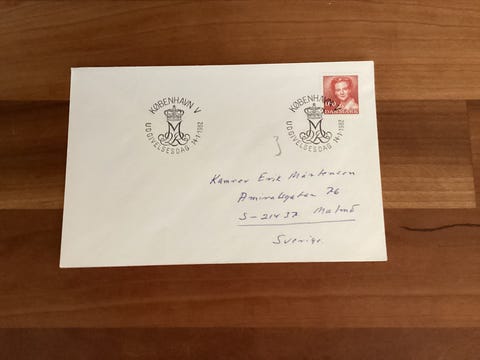 KØBENHAVN V
UDGIVELSESDAG 14-1-1982
KØBENHAVN
UDGIVELSESDAG 14-1-1982
DANMARK
3
Kamrer Erik Mårtensson
Amiralsgatan 76
S-21437 Malmö
Sverige.